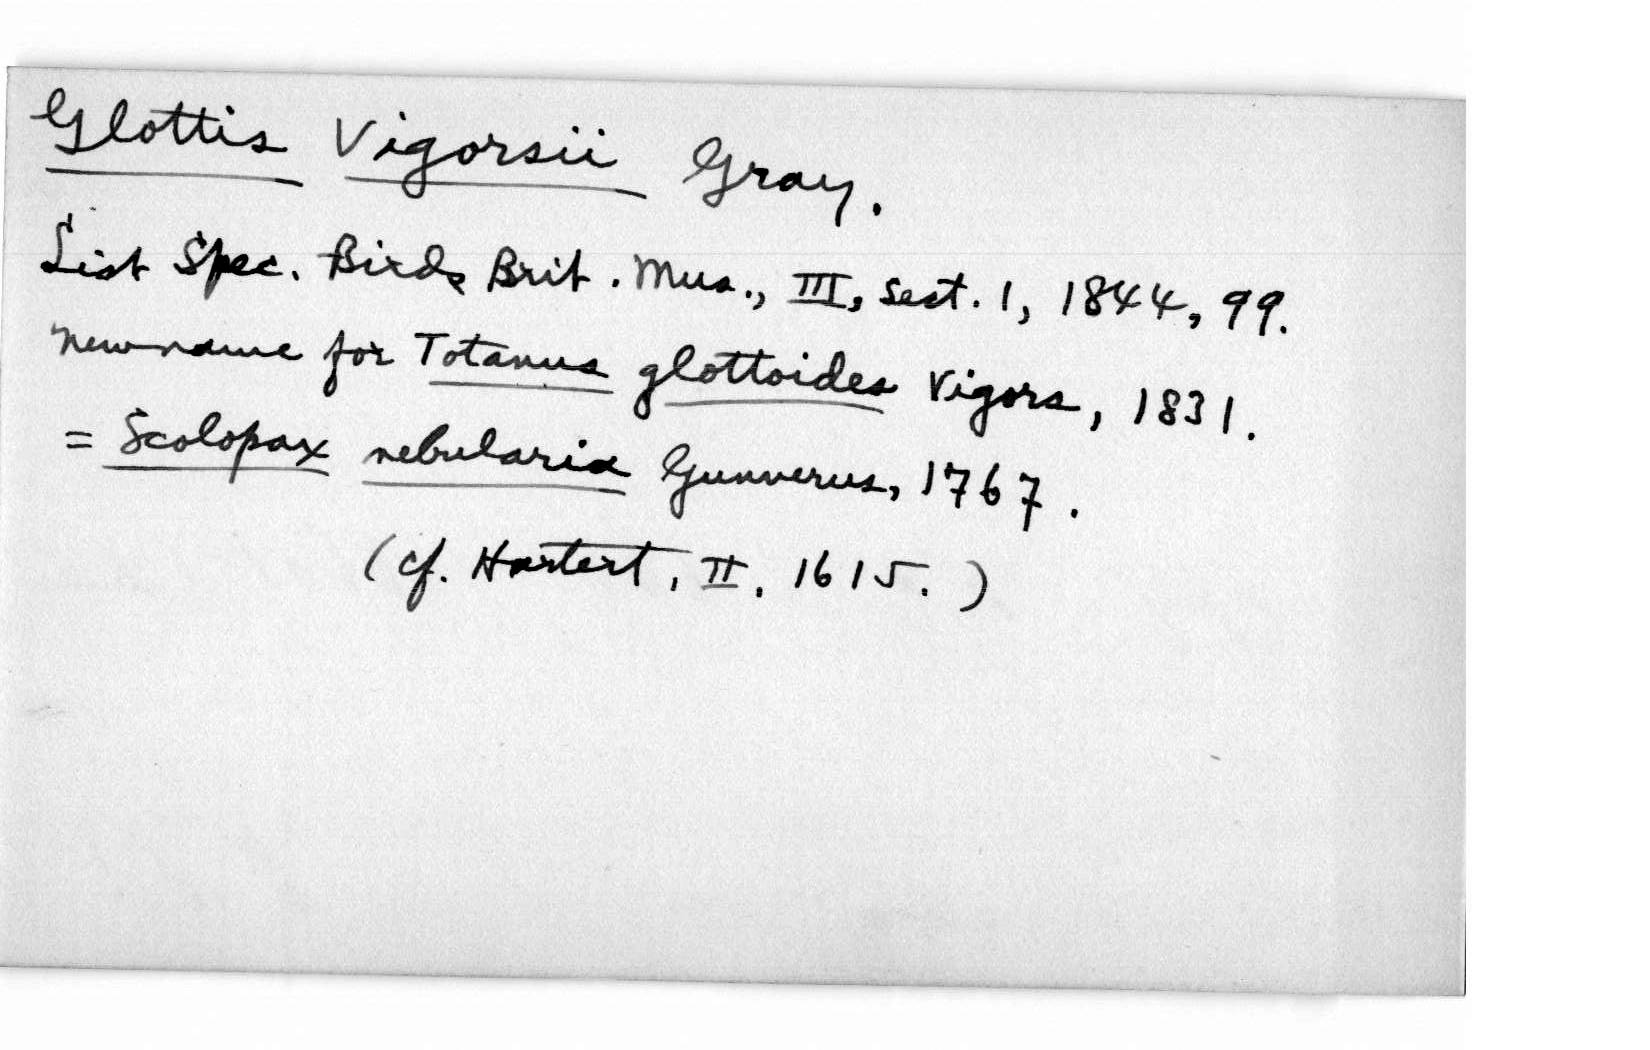 Glottis Vigorsii Gray.
List Spec. Birds Brit. Mus., III, sect. 1, 1844, 99.
New name for Totanus glottoides Vigors, 1831.
= Scolopax nebularia Gunnerus, 1767.
(cf. Hartert, II, 1615.)